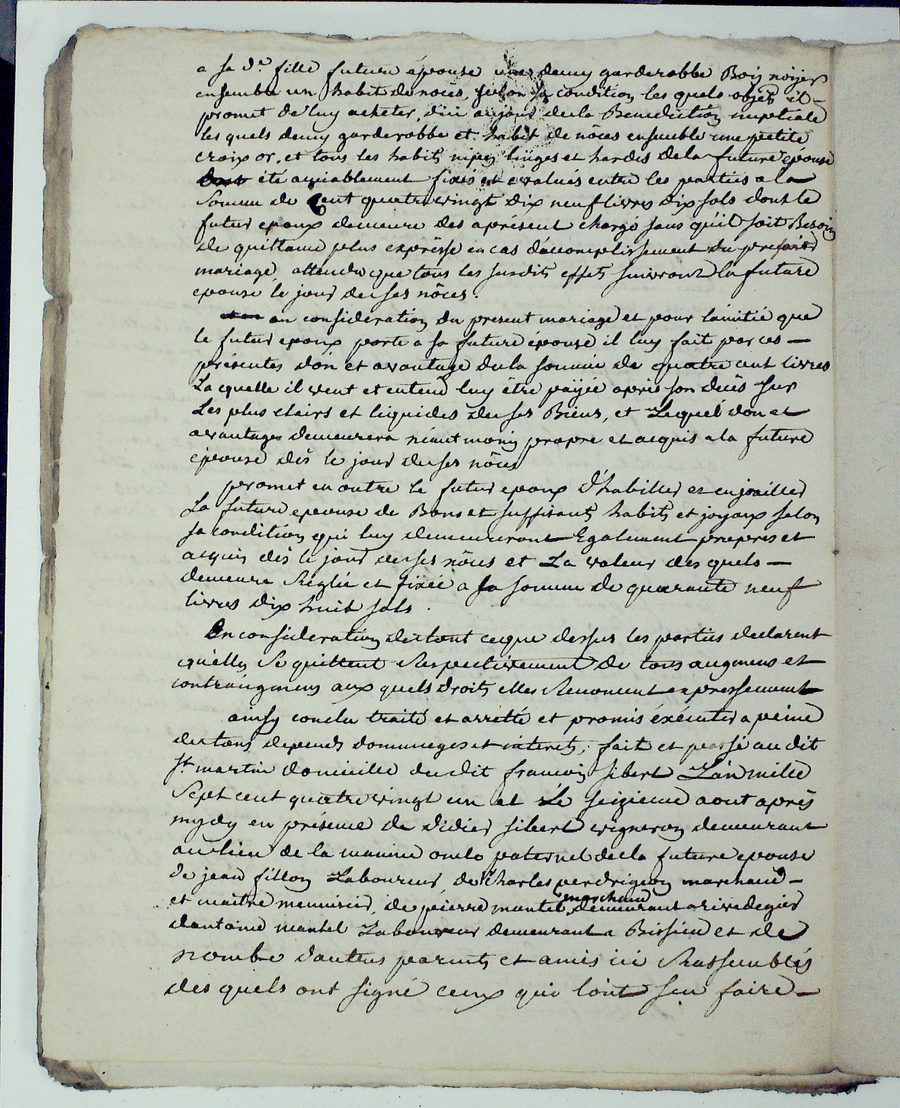 a sa d.e fille future épouse une demy garderobbe Bois noyer
ensemble un habit de nôces, selon sa condition les quels objets il
promet de luy acheter, dici au jour de la Benediction nuptiale
les quels demy garderobbe et habit de nôces ensemble une petite
croix or, et tous les habits nipes linges et hardes de la future épouse
été amiablement fixés et evalués entre les parties a la
Somme de Cent quatre vingt dix neuf livres dix sols dont le
futur epoux demeure des aprésent chargé sans quil soit Besoin
de quittance plus expresse en cas d'accomplissement du présent
mariage, attendu que tous les susdits effets suivront la future
epouse le jour de ses nôces.
en consideration du present mariage et pour lamitié que
le futur epoux porte a sa future épouse il luy fait par ces —
présentes don et avantage de la somme de quatre cent livres
La quelle il veut et entend luy être payée après son décès sur
Les plus clairs et liquides de ses Biens, et Lequel don et
avantages demeurera néantmoins propre et acquis a la future
épouse dès le jour de ses nôces
promet en outre le futur epoux d'habiller et enjoailler
La future epouse de Bons et suffisants habits et joyaux selon
sa condition qui luy demeureront Egalement propres et
acquis dès le jour de ses nôces et La valeur des quels —
demeure Réglée et fixée a la somme de quarante neuf
livres dix huit sols.
En consideration de tout ceque dessus les parties declarent
quelles Se quittent Respectivement de tous augmens et
contraugmens aux quels droits elles Renoncent expressement
ainsy conclu traité et arretté et promis éxécuter a peine
de tous depends dommages et interets, fait et passé au dit
St martin domicille du dit francois sibert L'an mille
Sept cent quatre vingt un et Le Seizieme aout après
mydy en présence de Didier sibert vigneron demeurant
au lieu de la oncle paternel de la future epouse
de jean fillon Laboureur, de Charles perdrigeon marchand —
et maitre menuisier, de pierre mantel marchand demeurant a rivedegier
dantoine mantel Laboureur demeurant a Bissieu et de
nombre dautres parents et amis ici Rassemblés
des quels ont signé ceux qui lont sçu faire —